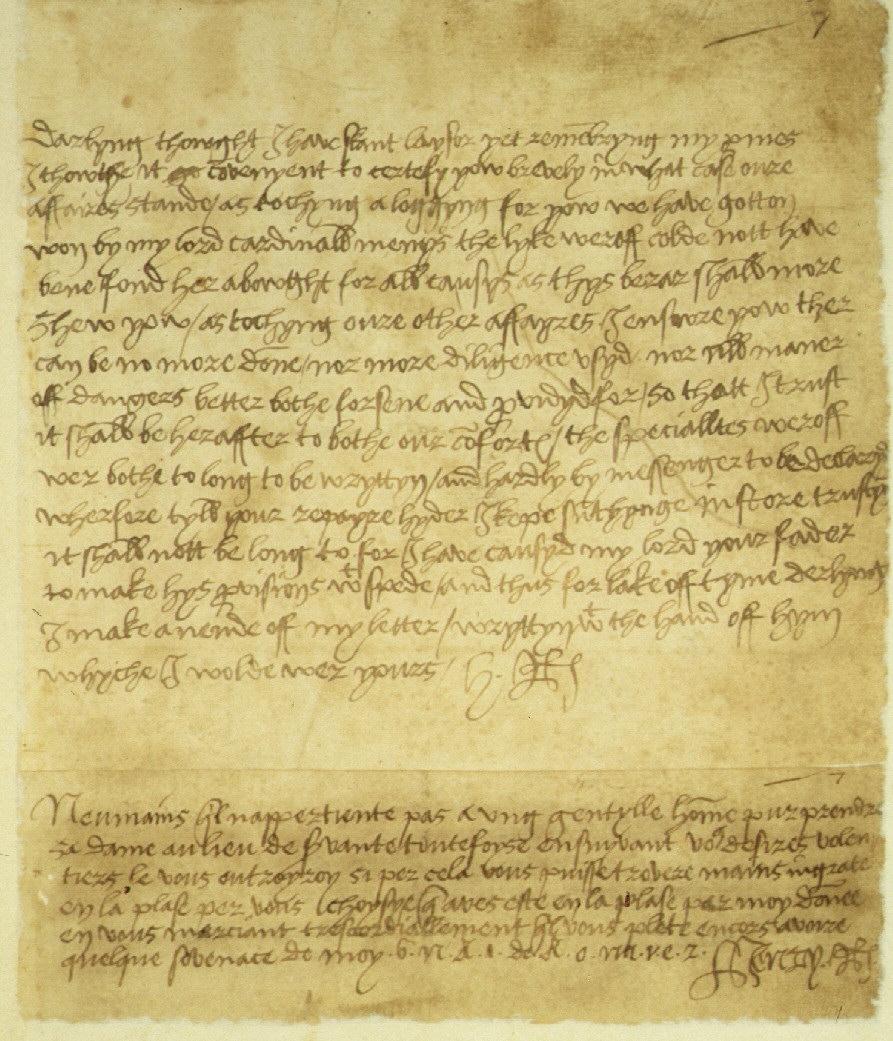 7
Darlyng thowght I have skant laysor yet remēbryng my pmes
I thowthe it cōvenyent to certefy yow brevely in what case oure
affaires stande / as tochyng a loggyng for yow we have gotton
won by my lord cardinalls menys the lyke weroff colde nott have
bene fond her abowght for all causys as thys berar shall more
shew yow / as tochyng oure other affayres I ensuore yow ther
can be no more done / nor more diligence usyd nor all maner
off dangers better bothe forsene and pvidyd for / so thatt I trust
it shall be heraffter to bothe our cōfort / the specialltes weroff
wer bothe to long to be wryttyn / and hardly by messenger to be declaryd
wherfore tyll your repayre hyder I kepe sūthynge in store trustyng
it shall nott be long to for I have causyd my lord your fader
to make hys pvisions wt spede / and thus for lake off tyme derlyng
I make a nende off my letter / wryttyn wt the hand off hym
whyche I wolde wer yours H. R
7
Neummains qil nappertiente pas a ung gentylle hōme pur prendre
sa dame au lieu de svante toutefoyse ensuivant vos desires volen
tiers le vous outroyroy si per cela vous puisse trovere mains ingrate
en la plase per vous choysye q aves este en la plase par moy donee
en vous merciant trescordiallement qil vous plete encors avoire
quelque sovenace de moy 6. n. A. 1. de A. o. na. ve. z.
Henry R